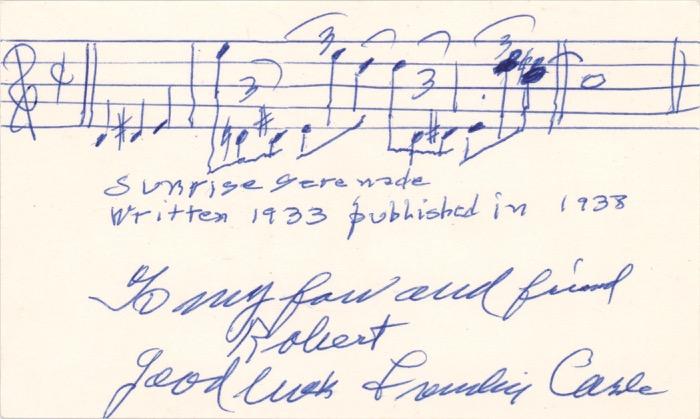 3 3 3 3
Sunrise Serenade
Written 1933 published in 1938
To my fan and friend
Robert
Good luck Frankie Carle